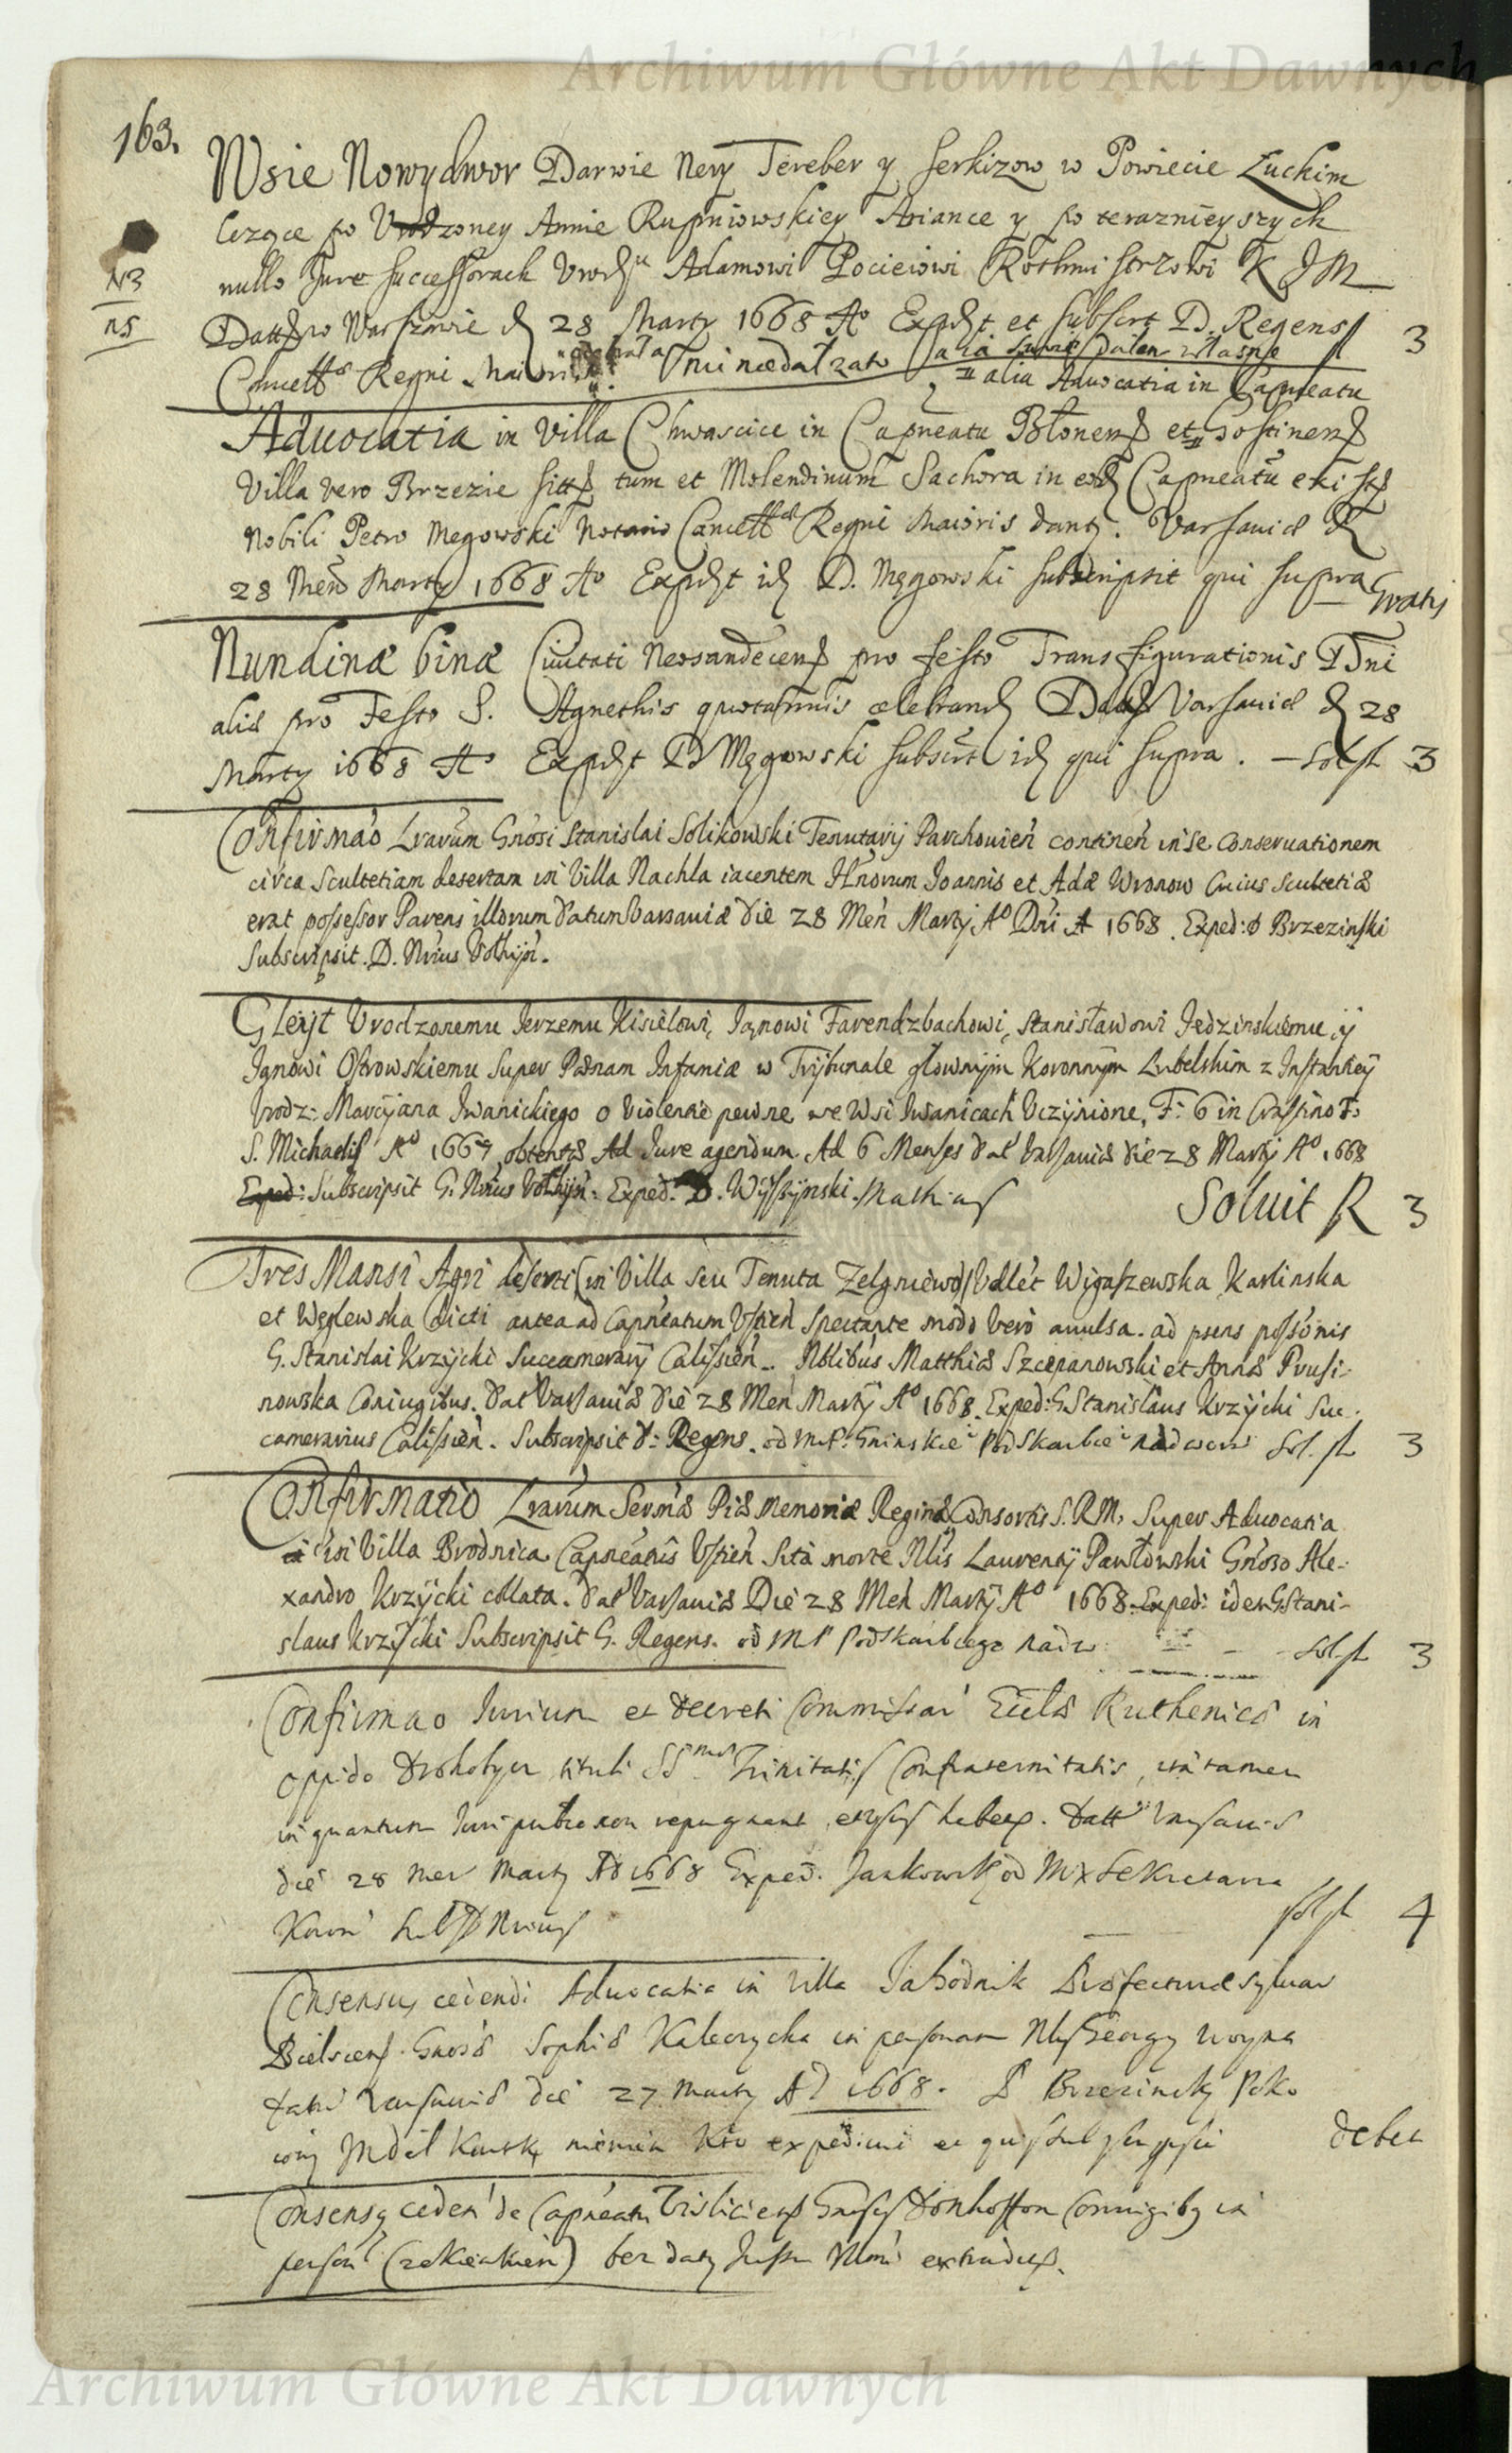 Archiwum Główne Akt Dawnych
163.
Wsie Nowydwor Darwie Nery Tereber y Serkizow w Powiecie Łuckim
lezące po Vrodzoney Annie Rupniowskiey Ariance y po teraznieyszych
nullo Jure successorach Vrodzu Adamowi Pocieiowi Rothmistrzowi K J M
N3
ns
Datt w Warszawie d 28 Marty 1668 Ao Expdt et subscrt D. Regens fl 3
Cancellae Regni Maioris nie nie dał zato
alia Advocatia in Capneatu
Advocatia in Villa Chwascice in Capneatu Błonens et Gostinens
Villa vero Brzezie sitt tum et Molendinum Sachora in eod Capneatu exist
Nobili Petro Męgowski Notario Cancellae Regni Maioris dant. Varsaviae d
28 Mens Marty 1668 Ao Expdt id D. Męgowski subscripsit qui supra Gratis
Nundinæ binæ Civitati Neosandecens pro festo Transfigurationis Dni
alia pro Festo S. Agnethis quotannis celebrand Datt Varsaviæ d 28
Marty 1668 Ao Expdt D Męgowski subscrt id qui supra. – Sol fl 3
Confirmao Lrarum Gnosi Stanislai Solikowski Tenutarij Parchovien continen in se conservationem
circa Scultetiam desertam in Villa Nachla iacentem Nnorum Joannis et Adæ Wronow Cuius Scultetiæ
erat possessor Parens illorum Datum Varsaviæ Die 28 Men Martij Ao Dni A 1668. Exped: D Brzezinski
Subscripsit. D. Nrius Volhijn.
Gleyt Vrodzonemu Jerzemu Kisielowi, Janowi Farendzbachowi, Stanisławowi Jedzinskiemu, ÿ
Janowi Ostrowskiemu Super Pœnam Infamiæ w Trÿbunale głownÿm Koronnÿm Lubelskim z Instankcÿ
Vrodz: Marcÿana Iwanickiego o Violencie pewne we Wsi Iwanicach Vczÿnione, F: 6 in Crastino F:
S. Michaelis Ao 1667 obtentæ Ad Jure agendum. Ad 6 Menses Dat Varsaviæ Die 28 Martÿ Ao 1668
Exped: Subscripsit G. Nrius Volhijn. Exped: D. Wÿszÿnski. Mathias Soluit R 3
Tres Mansi Agri deserti in Villa seu Tenuta Zelgniewo Vdlet Wigaszewska Karlinska
et Węglewska dicti antea ad Capneatum Vstien Spectante modo vero avulsa. ad psens possonis
G. Stanislai Krzÿcki Succamerarÿ Calissien. Nobilibus Matthiæ Szczepanowski et Annæ Prusi-
nowska Coniugibus. Dat Varsaviæ Die 28 Men Martÿ Ao 1668. Exped: G. Stanislaus Krzÿcki Suc-
camerarius Calissien. Subscripsit D: Regens. od MP: Gninskie Podskarbie nadwor: Sol. fl 3
Confirmatio Lrarum Sermæ Piæ Memoriæ Reginæ Consortis S.R.M. Super Advocatia
in Villa Brodnica Capneatus Vstien Sita morte Nlis Laurentÿ Pawłowski Gnoso Ale-
xandro Krzÿcki collata. Dat Varsaviæ Die 28 Men Martÿ Ao 1668. Exped: idem G Stani-
slaus Krzÿcki Subscripsit G. Regens. od MP Podskarbiego nadw: – Sol. fl 3
Confirmao Jurium et Decreti Commissar Eccla Ruthenicæ in
oppido Drohobycz tituli SSmæ Trinitatis Confraternitatis, ita tamen
in quantum Juri publico non repugnant, et usus habetz. Datt Varsaviæ
die 28 Men Marty Ao 1668 Exped. Jankowski od MX Sekretarza
Koron Sub D Nrius sol fl 4
Consensus cedendi Advocatia in villa Jahodnik Præfecturæ sylvar
Bielscens. Gnosæ Sophiæ Kaleczycka in personam Nlis Georgy Woyna
Datt Varsaviæ die 27 Marty Ao 1668. P Brzezinsky Poko
iowy JM dał Kartk niewiem kto expediuit et quis subscripsit debet
Consensus ceden de Capneatu Visliciens Gnosis Donhoffon Coniugibus in
person (zekieakien) bez daty Jussu Illmi extradit.
Archiwum Główne Akt Dawnych